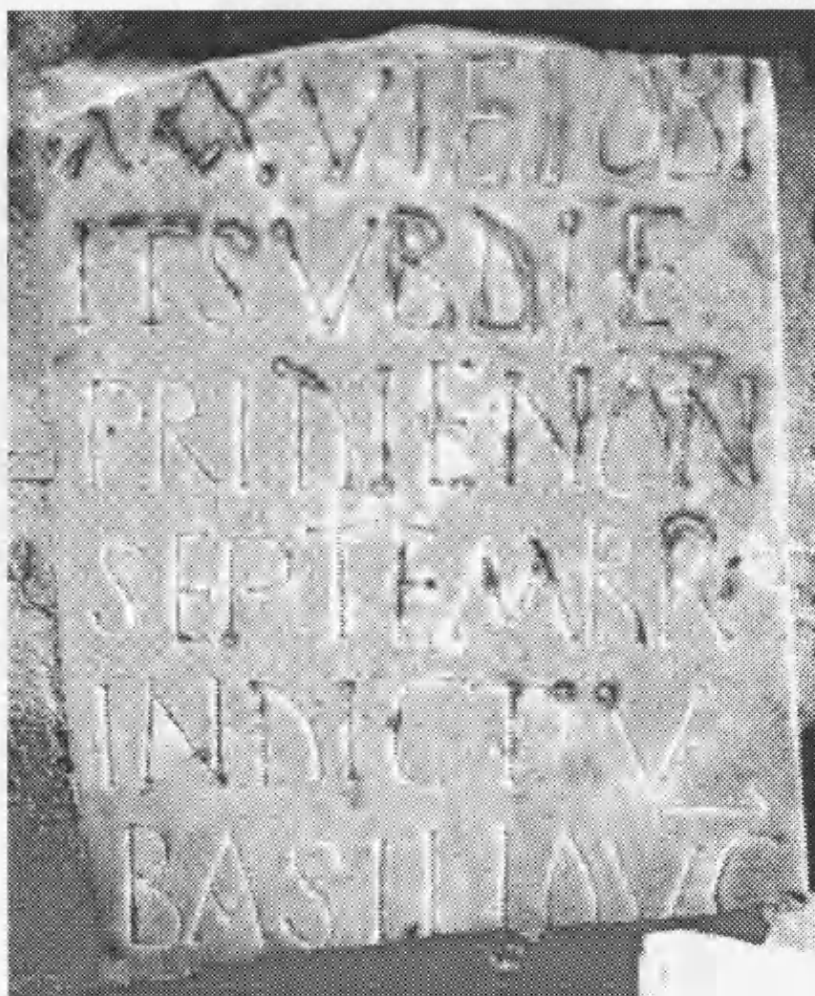 OBI
IT SVB DIE
PRIDIE NON
SEPTEMBR
INDICT V
BASILI